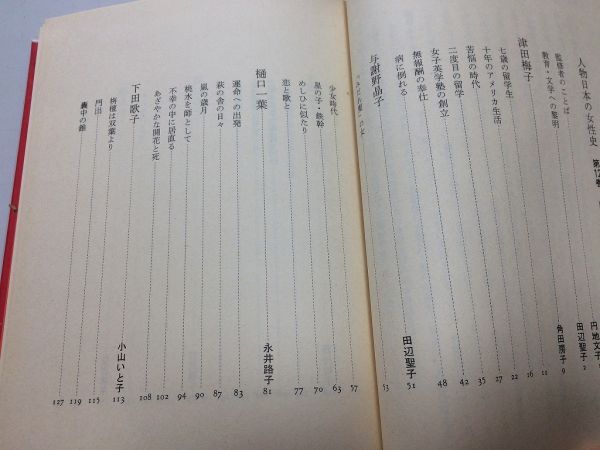 人物日本の女性史 第12巻
円地文子
監修者のことば 田辺聖子 2
教育・文学への黎明
津田梅子 角田房子 9
七歳の留学生 11
十年のアメリカ生活 16
苦悩の時代 22
二度目の留学 27
女子英学塾の創立 35
無報酬の奉仕 42
病に倒れる 48
与謝野晶子 田辺聖子 51
53
少女時代 57
星の子・鉄幹 63
めしひに似たり 70
恋と歌と 77
樋口一葉 永井路子 81
運命への出発 83
萩の舎の日々 87
嵐の歳月 90
桃水を師として 94
不幸の中に居直る 102
あざやかな開花と死 108
下田歌子 小山いと子 113
栴檀は双葉より 115
門出 119
嚢中の錐 127